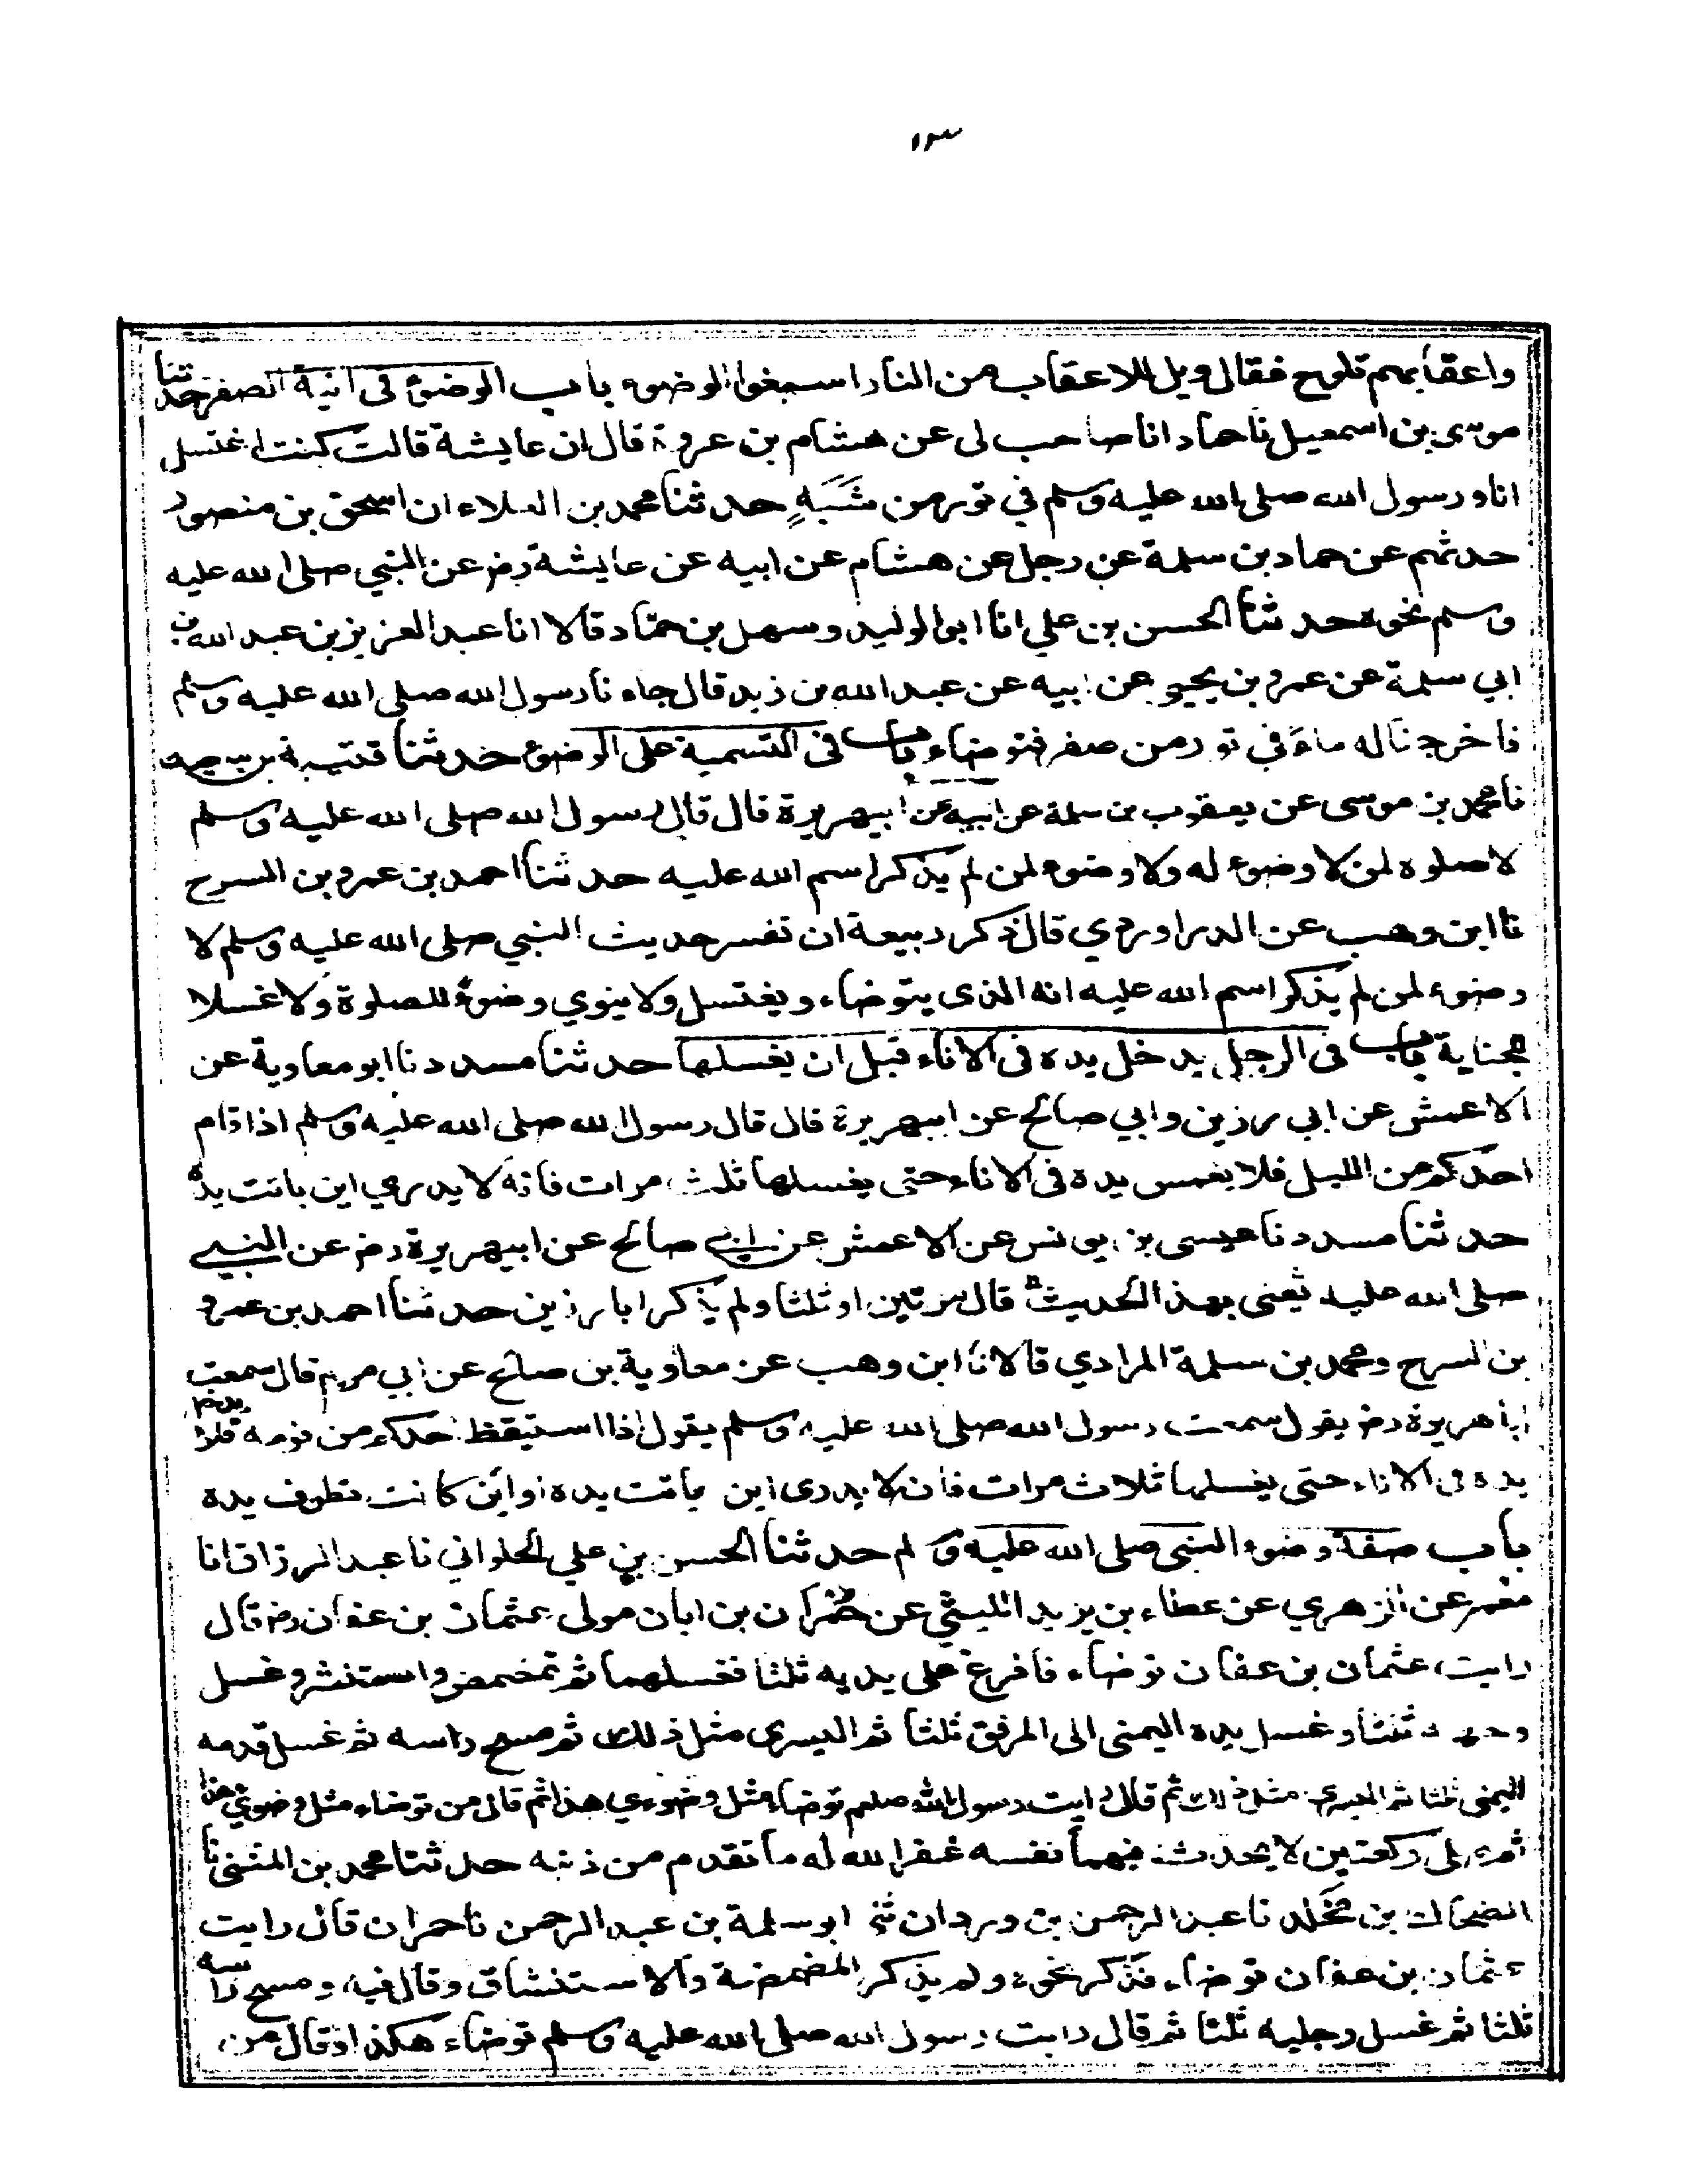 ١٣
واعقابهم تلوح فقال ويل للاعقاب من النار اسبغوا الوضوء باب الوضوء في انية الصفر حدثنا
موسى بن اسمعيل نا حماد انا صاحب لى عن هشام بن عروة قال ان عايشة قالت كنت اغتسل
انا ورسول الله صلى الله عليه وسلم في تور من شَبَهٍ حدثنا محمد بن العلاء ان اسحق بن منصور
حدثهم عن حماد بن سلمة عن رجل عن هشام عن ابيه عن عايشة رض عن النبي صلى الله عليه
وسلم نحوه حدثنا الحسن بن علي انا ابو الوليد وسهل بن حمّاد قالا انا عبد العزيز بن عبد الله بن
ابي سلمة عن عمرو بن يحيى عن ابيه عن عبد الله بن زيد قال جاء نا رسول الله صلى الله عليه وسلم
فاخرجنا له ماءً في تور من صفر فتوضاء باب فى التسمية على الوضوء حدثنا قتيبة بن سعيد
نا محمد بن موسى عن يعقوب بن سلمة عن ابيه عن ابيهريرة قال قال رسول الله صلى الله عليه وسلم
لا صلوة لمن لا وضوء له ولا وضوء لمن لم يذكر اسم الله عليه حدثنا احمد بن عمرو بن السرح
نا ابن وهب عن الدراوردي قال ذكر ربيعة ان تفسر حديث النبي صلى الله عليه وسلم لا
وضوء لمن لم يذكر اسم الله عليه انه الذى يتوضاء ويغتسل ولا ينوي وضوءً للصلوة ولا غسلا
لجنابة باب فى الرجل يدخل يده فى الاناء قبل ان يغسلها حدثنا مسدد نا ابو معاوية عن
الاعمش عن ابي رزين وابي صالح عن ابيهريرة قال قال رسول الله صلى الله عليه وسلم اذا قام
احدكم من الليل فلا يغمس يده فى الاناء حتى يغسلها ثلث مرات فانه لا يدري اين باتت يده
حدثنا مسدد نا عيسى بن يونس عن الاعمش عن ابي صالح عن ابيهريرة رض عن النبي
صلى الله عليه يعنى بهذ الحديث قال مرتين او ثلثا ولم يذكر ابا رزين حدثنا احمد بن عمرو
بن السرح ومحمد بن سلمة المرادي قالا نا ابن وهب عن معاوية بن صالح عن ابي مريم قال سمعت
ابا هريرة رض يقول سمعت رسول الله صلى الله عليه وسلم يقول اذا استيقظ احدكم من نومه فلا يدخل
يده فى الاناء حتى يغسلها ثلاث مرات فان لا يدرى اين باتت يده او اين كانت تطوف يده
باب صفة وضوء النبى صلى الله عليه و لم حدثنا الحسن بن علي الحلواني نا عبد الرزاق انا
معمر عن الزهري عن عطاء بن يزيد الليثي عن حُمْرَان بن ابان مولى عثمان بن عفان رض قال
رايت عثمان بن عفان توضاء فافرغ على يديه ثلثا فغسلهما ثم تمضمض واستنثر وغسل
وجهه ثلثا وغسل يده اليمنى الى المرفق ثلثا ثم اليسرى مثل ذلك ثم مسح راسه ثم غسل قدمه
اليمنى ثلثا ثم اليسرى مثل ذلك ثم قال رايت رسول الله صلعم توضاء مثل وضوءي هذا ثم قال من توضاء مثل وضوءي هذا
ثم صلى ركعتين لا يحدث فيهما نفسه غفر الله له ما تقدم من ذنبه حدثنا محمد بن المثنى نا
الضحاك بن مخلد نا عبد الرحمن بن وردان ثنى ابو سلمة بن عبد الرحمن نا حمران قال رايت
عثمان بن عفان توضاء فذكر نحوه ولم يذكر المضمضة والاستنشاق وقال فيه ومسح راسه
ثلثا ثم غسل رجليه ثلثا ثم قال رايت رسول الله صلى الله عليه وسلم توضاء هكذا وقال من